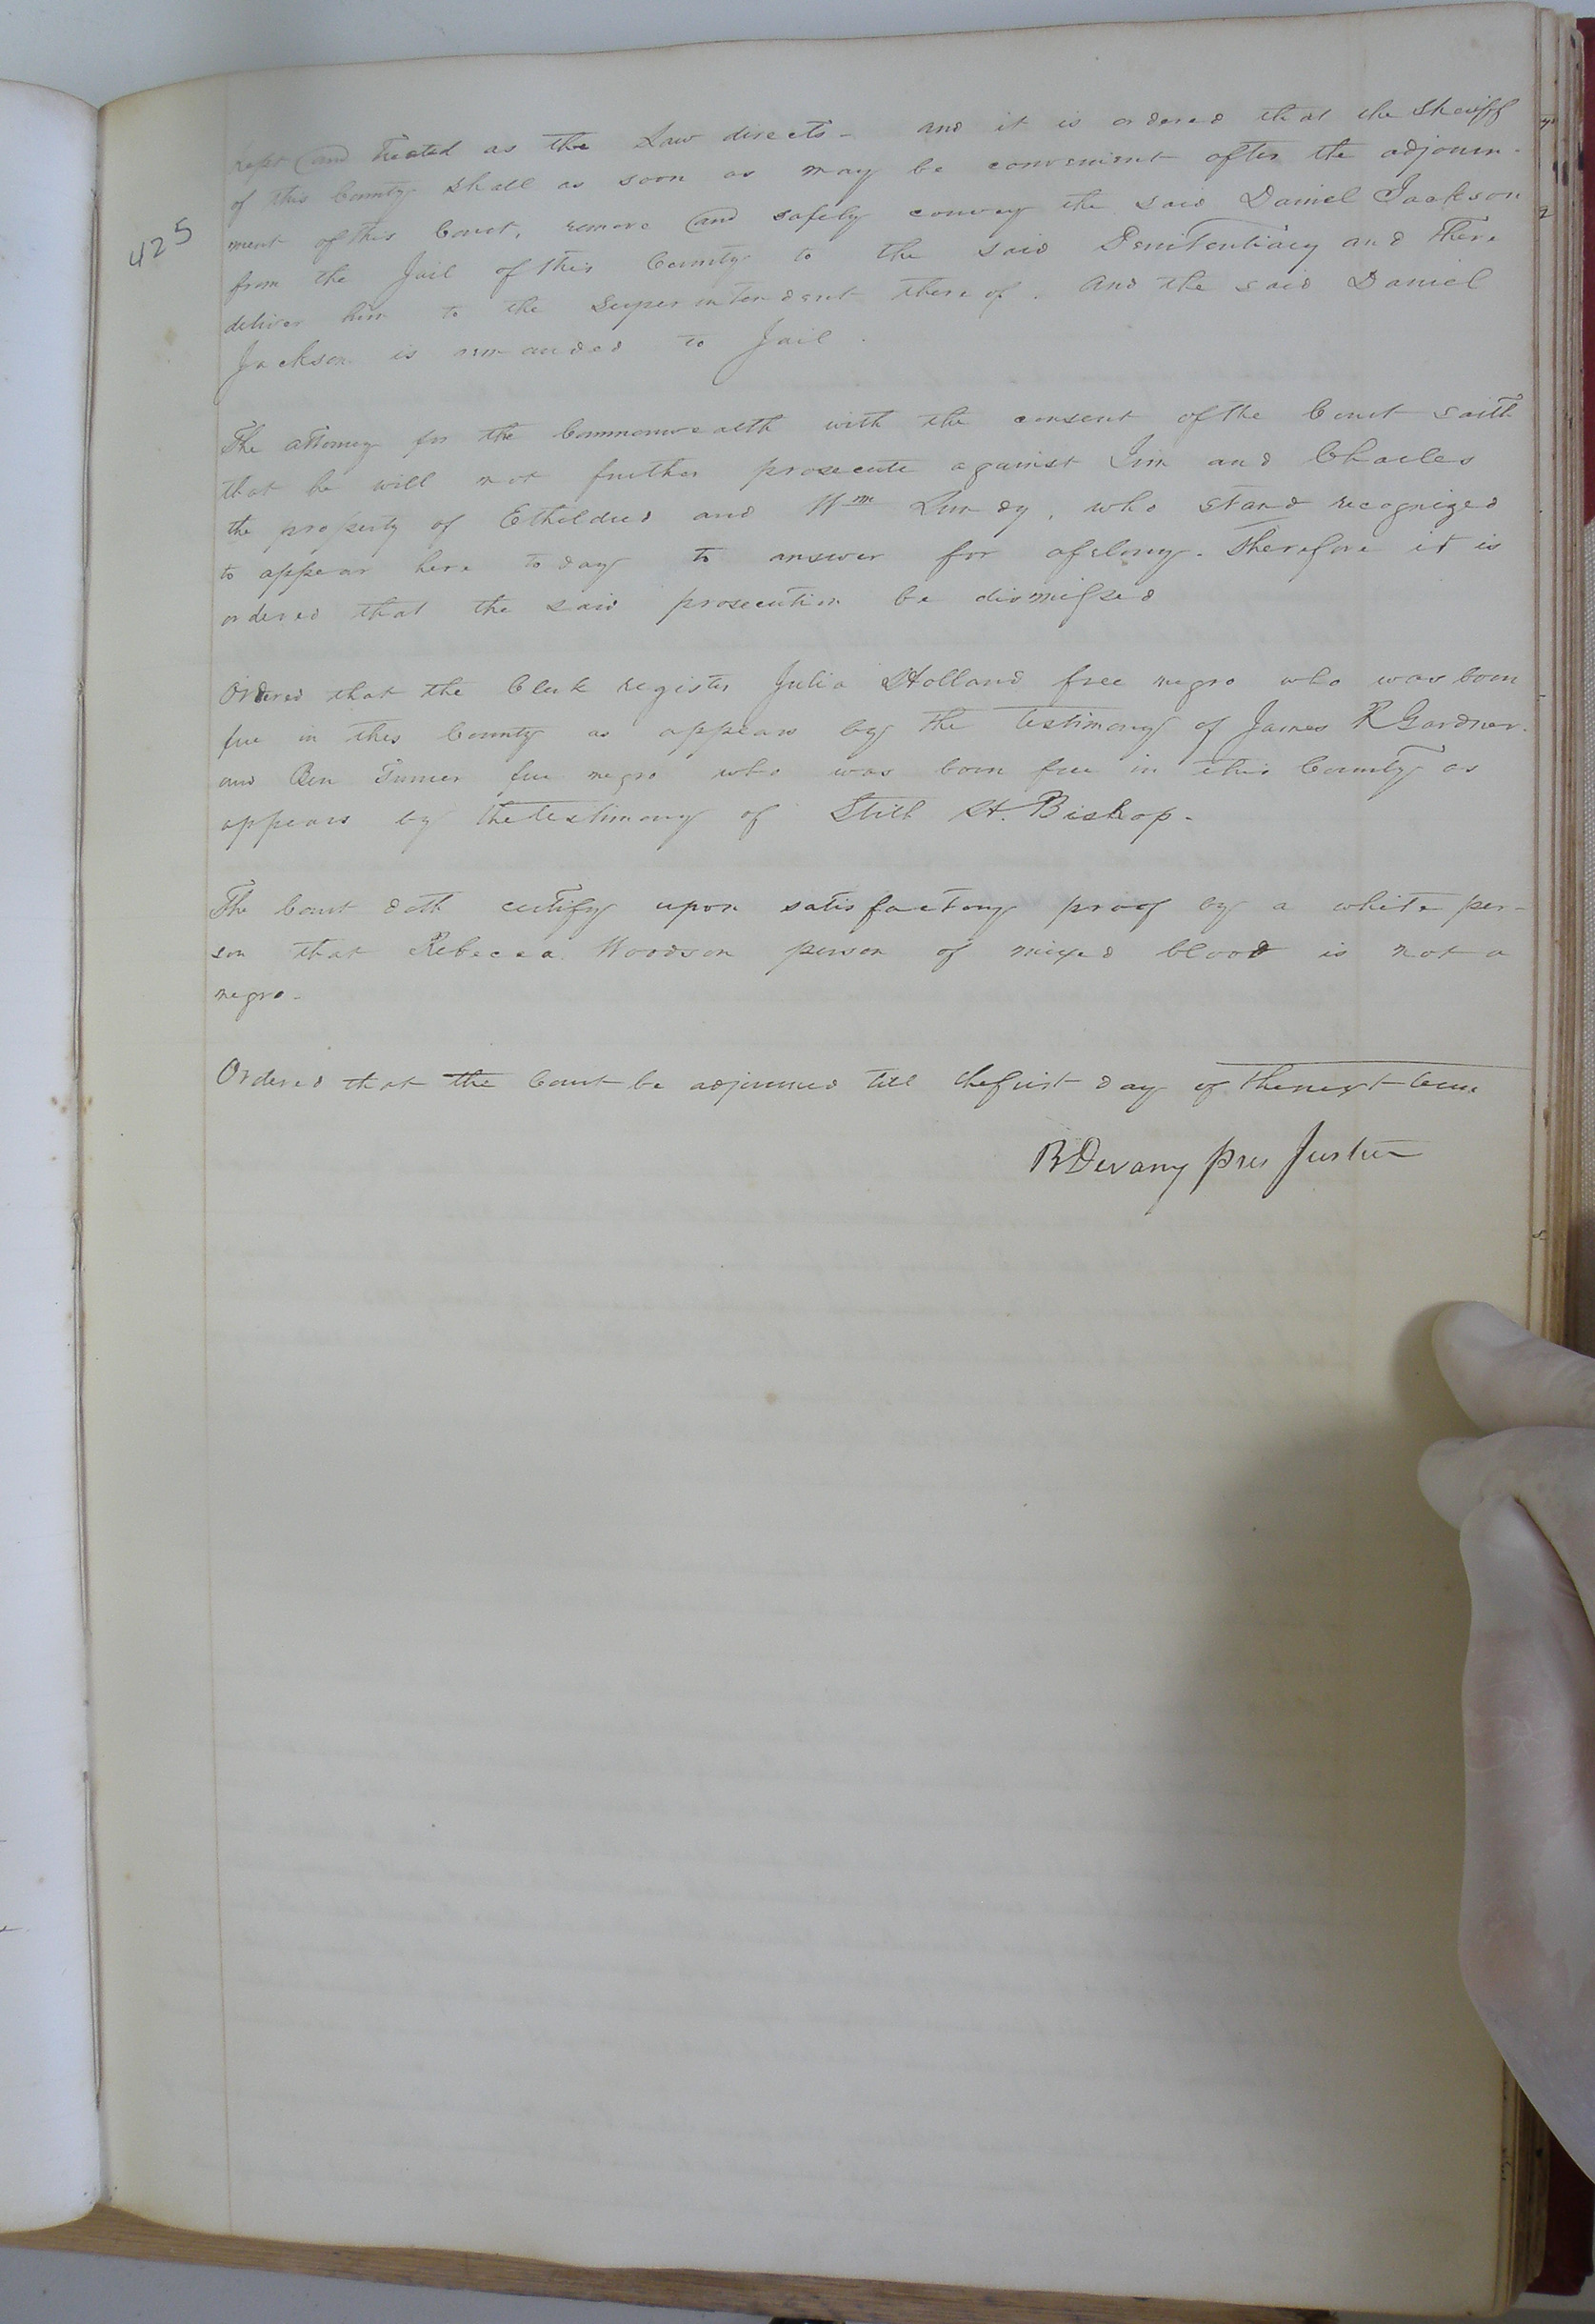 425
kept and treated as the Law directs - and it is ordered that the Sheriff
of this County shall as soon as may be convenient after the adjourn-
ment of this Court, remove and safely convey the said Daniel Jackson
from the Jail of this County to the said Penitentiary and there
deliver him to the Superintendent thereof. And the said Daniel
Jackson is remanded to Jail.
The attorney for the Commonwealth with the consent of the Court saith
that he will not further prosecute against Jim and Charles
the property of Etheldred and Wm Lundy, who stand recognized
to appear here to day to answer for a felony. Therefore it is
ordered that the said prosecution be dismissed
Ordered that the Clerk register Julia Holland free negro who was born
free in this County as appears by the testimony of James R Gardner.
and Ben Turner free negro who was born free in this County as
appears by the testimony of Stith H. Bishop.
The Court doth certify upon satisfactory proof by a white per-
son that Rebecca Woodson person of mixed blood is not a
negro.
Ordered that the Court be adjourned till the first day of the next term
B Devany pres Justice